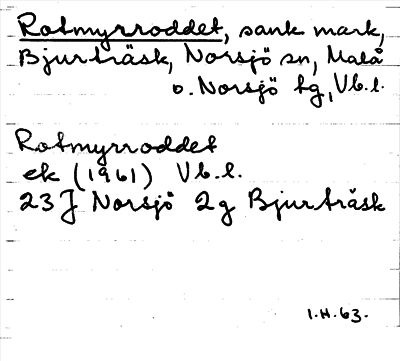 Rotmyrroddet, sank mark,
Bjurträsk, Norsjö sn, Malå
o. Norsjö tg, Vb.l.
Rotmyrroddet
ek (1961) Vb.l.
23J Norsjö 2g Bjurträsk
I.H.63.